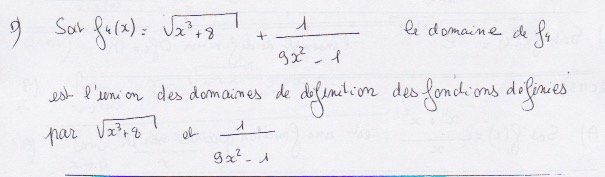 9) Soit f₄(x) = √(x³+8) + 1/(9x² - 1) le domaine de f₄
est l'union des domaines de definition des fonctions définies
par √(x³+8) et 1/(9x² - 1)